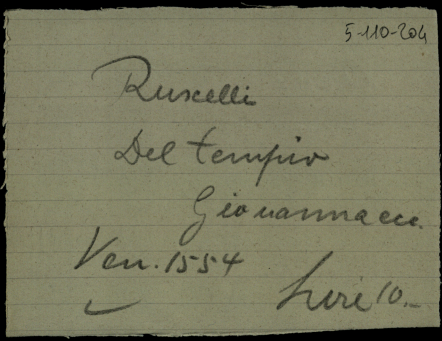 5-110-204
Ruscelli
Del tempio
Giovanna ecc.
Ven. 1554
Lire 10.-